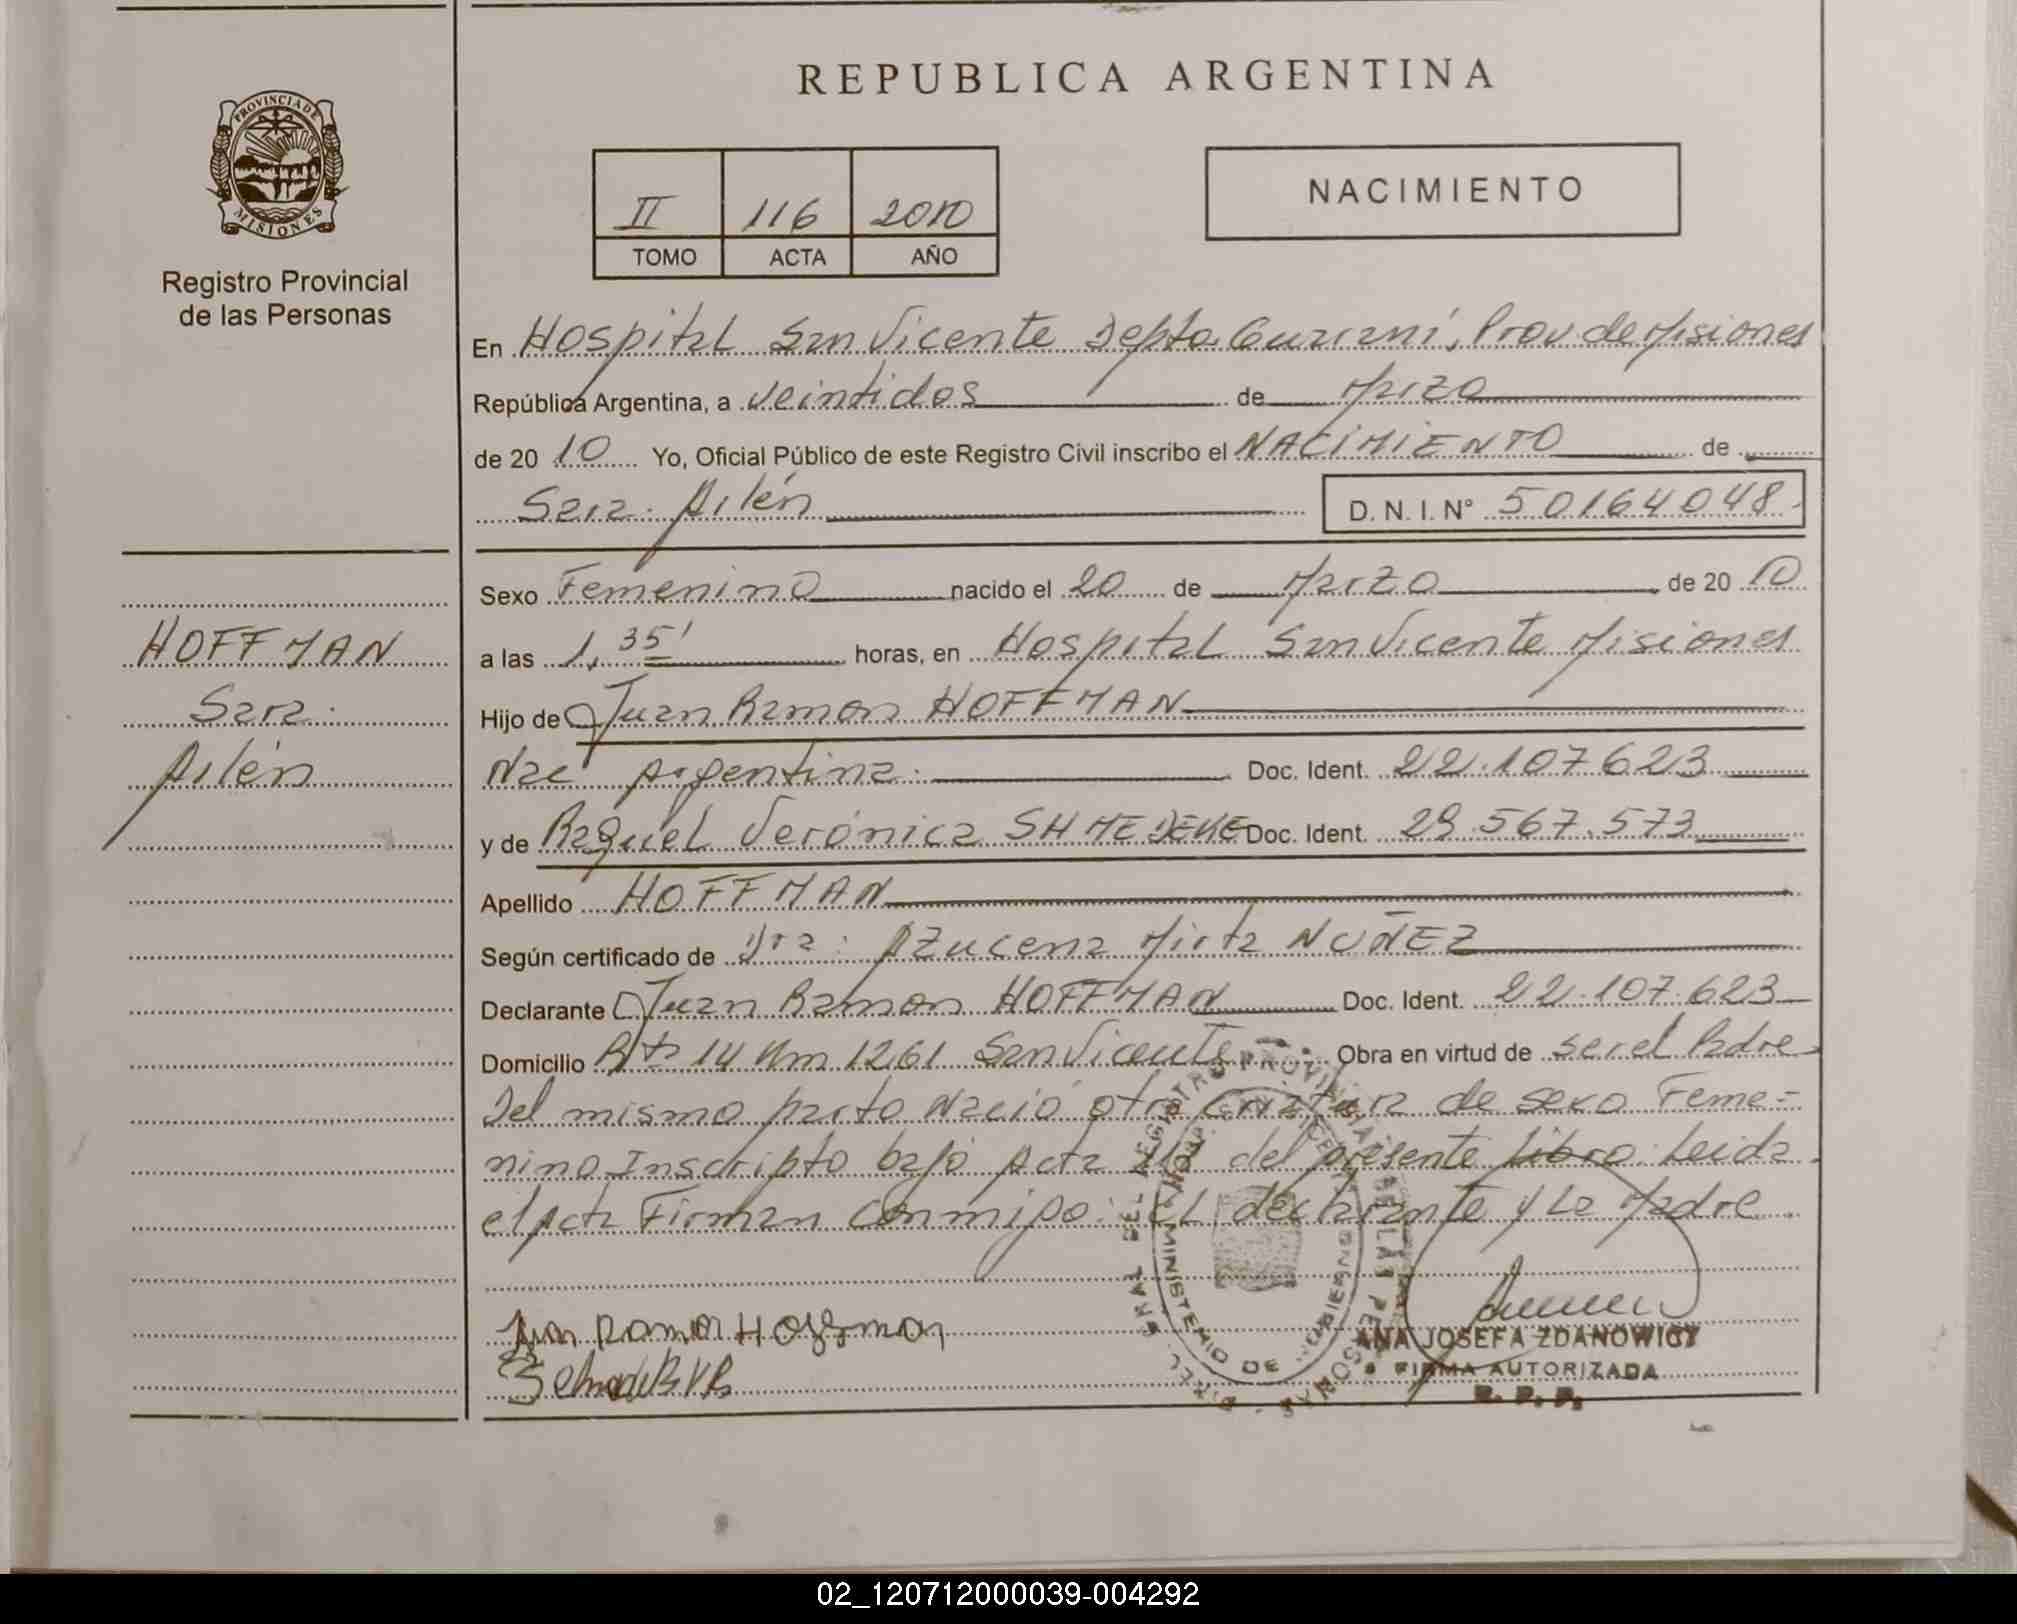 REPUBLICA ARGENTINA
PROVINCIA DE
MISIONES
Registro Provincial
de las Personas
II 116 2010
TOMO ACTA AÑO
NACIMIENTO
En Hospital San Vicente Depto Guarani, Prov de Misiones
República Argentina, a veintidos de Marzo
de 20 10 Yo, Oficial Público de este Registro Civil inscribo el NACIMIENTO de
Sara Ailén D.N.I. Nº 50164048
Sexo Femenino nacido el 20 de Marzo de 20 10
HOFFMAN
Sara
Ailén
a las 1,35' horas, en Hospital San Vicente Misiones
Hijo de Juan Ramon HOFFMAN
Nac Argentina Doc. Ident. 22.107.623
y de Raquel Verónica Doc. Ident. 29.567.573
Apellido HOFFMAN
Según certificado de Dra: Azucena Mirta NUÑEZ
Declarante Juan Ramon HOFFMAN Doc. Ident. 22.107.623
Domicilio Rta 14 Km 1261 San Vicente Obra en virtud de ser el Padre
Del mismo parto Nació otra criatura de sexo Feme-
nino Inscripto bajo Acta del presente Libro. Leida
el Acta Firman conmigo: el declarante y La Madre
Juan Ramon Hoffman
ANA JOSEFA ZDANOWICZ
FIRMA AUTORIZADA
R. P. P.
02_120712000039-004292